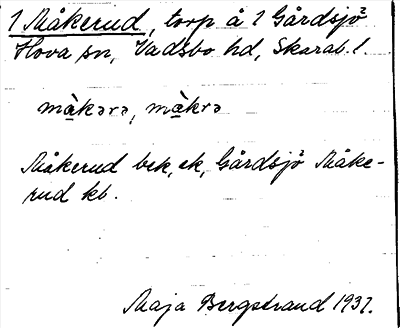 1 Måkerud, torp å 2 Gårdsjö
Hova sn, Vadsbo hd, Skarab. l.
màkərə, màkrə
Måkerud bek, ek, Gårdsjö Måke-
rud kb.
Maja Bergstrand 1937.